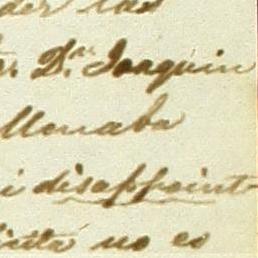 der las
r. Dn. Joaquin
llonaba
i disappoint-
icita no es